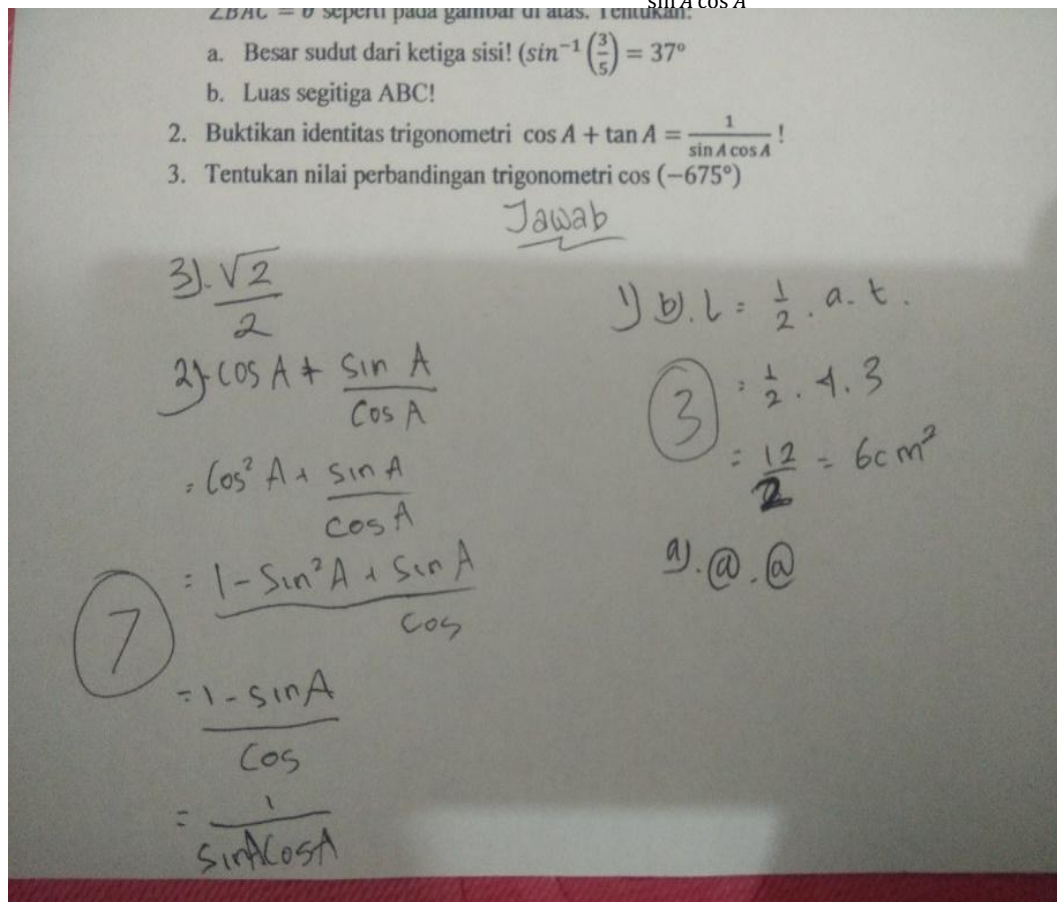 sin A cos A
∠BAC = θ seperti pada gambar di atas. Tentukan:
a. Besar sudut dari ketiga sisi! (sin⁻¹(3/5) = 37°
b. Luas segitiga ABC!
2. Buktikan identitas trigonometri cos A + tan A = 1/(sin A cos A) !
3. Tentukan nilai perbandingan trigonometri cos (−675°)
Jawab
3). √2/2
2). cos A + sin A/cos A
= cos² A + sin A/cos A
= (1 - sin² A + sin A)/cos
7
= (1 - sin A)/cos
= 1/(sin A cos A)
1) b). L = 1/2 . a . t .
3
= 1/2 . 4 . 3
= 12/2 = 6 cm²
a). @ . @